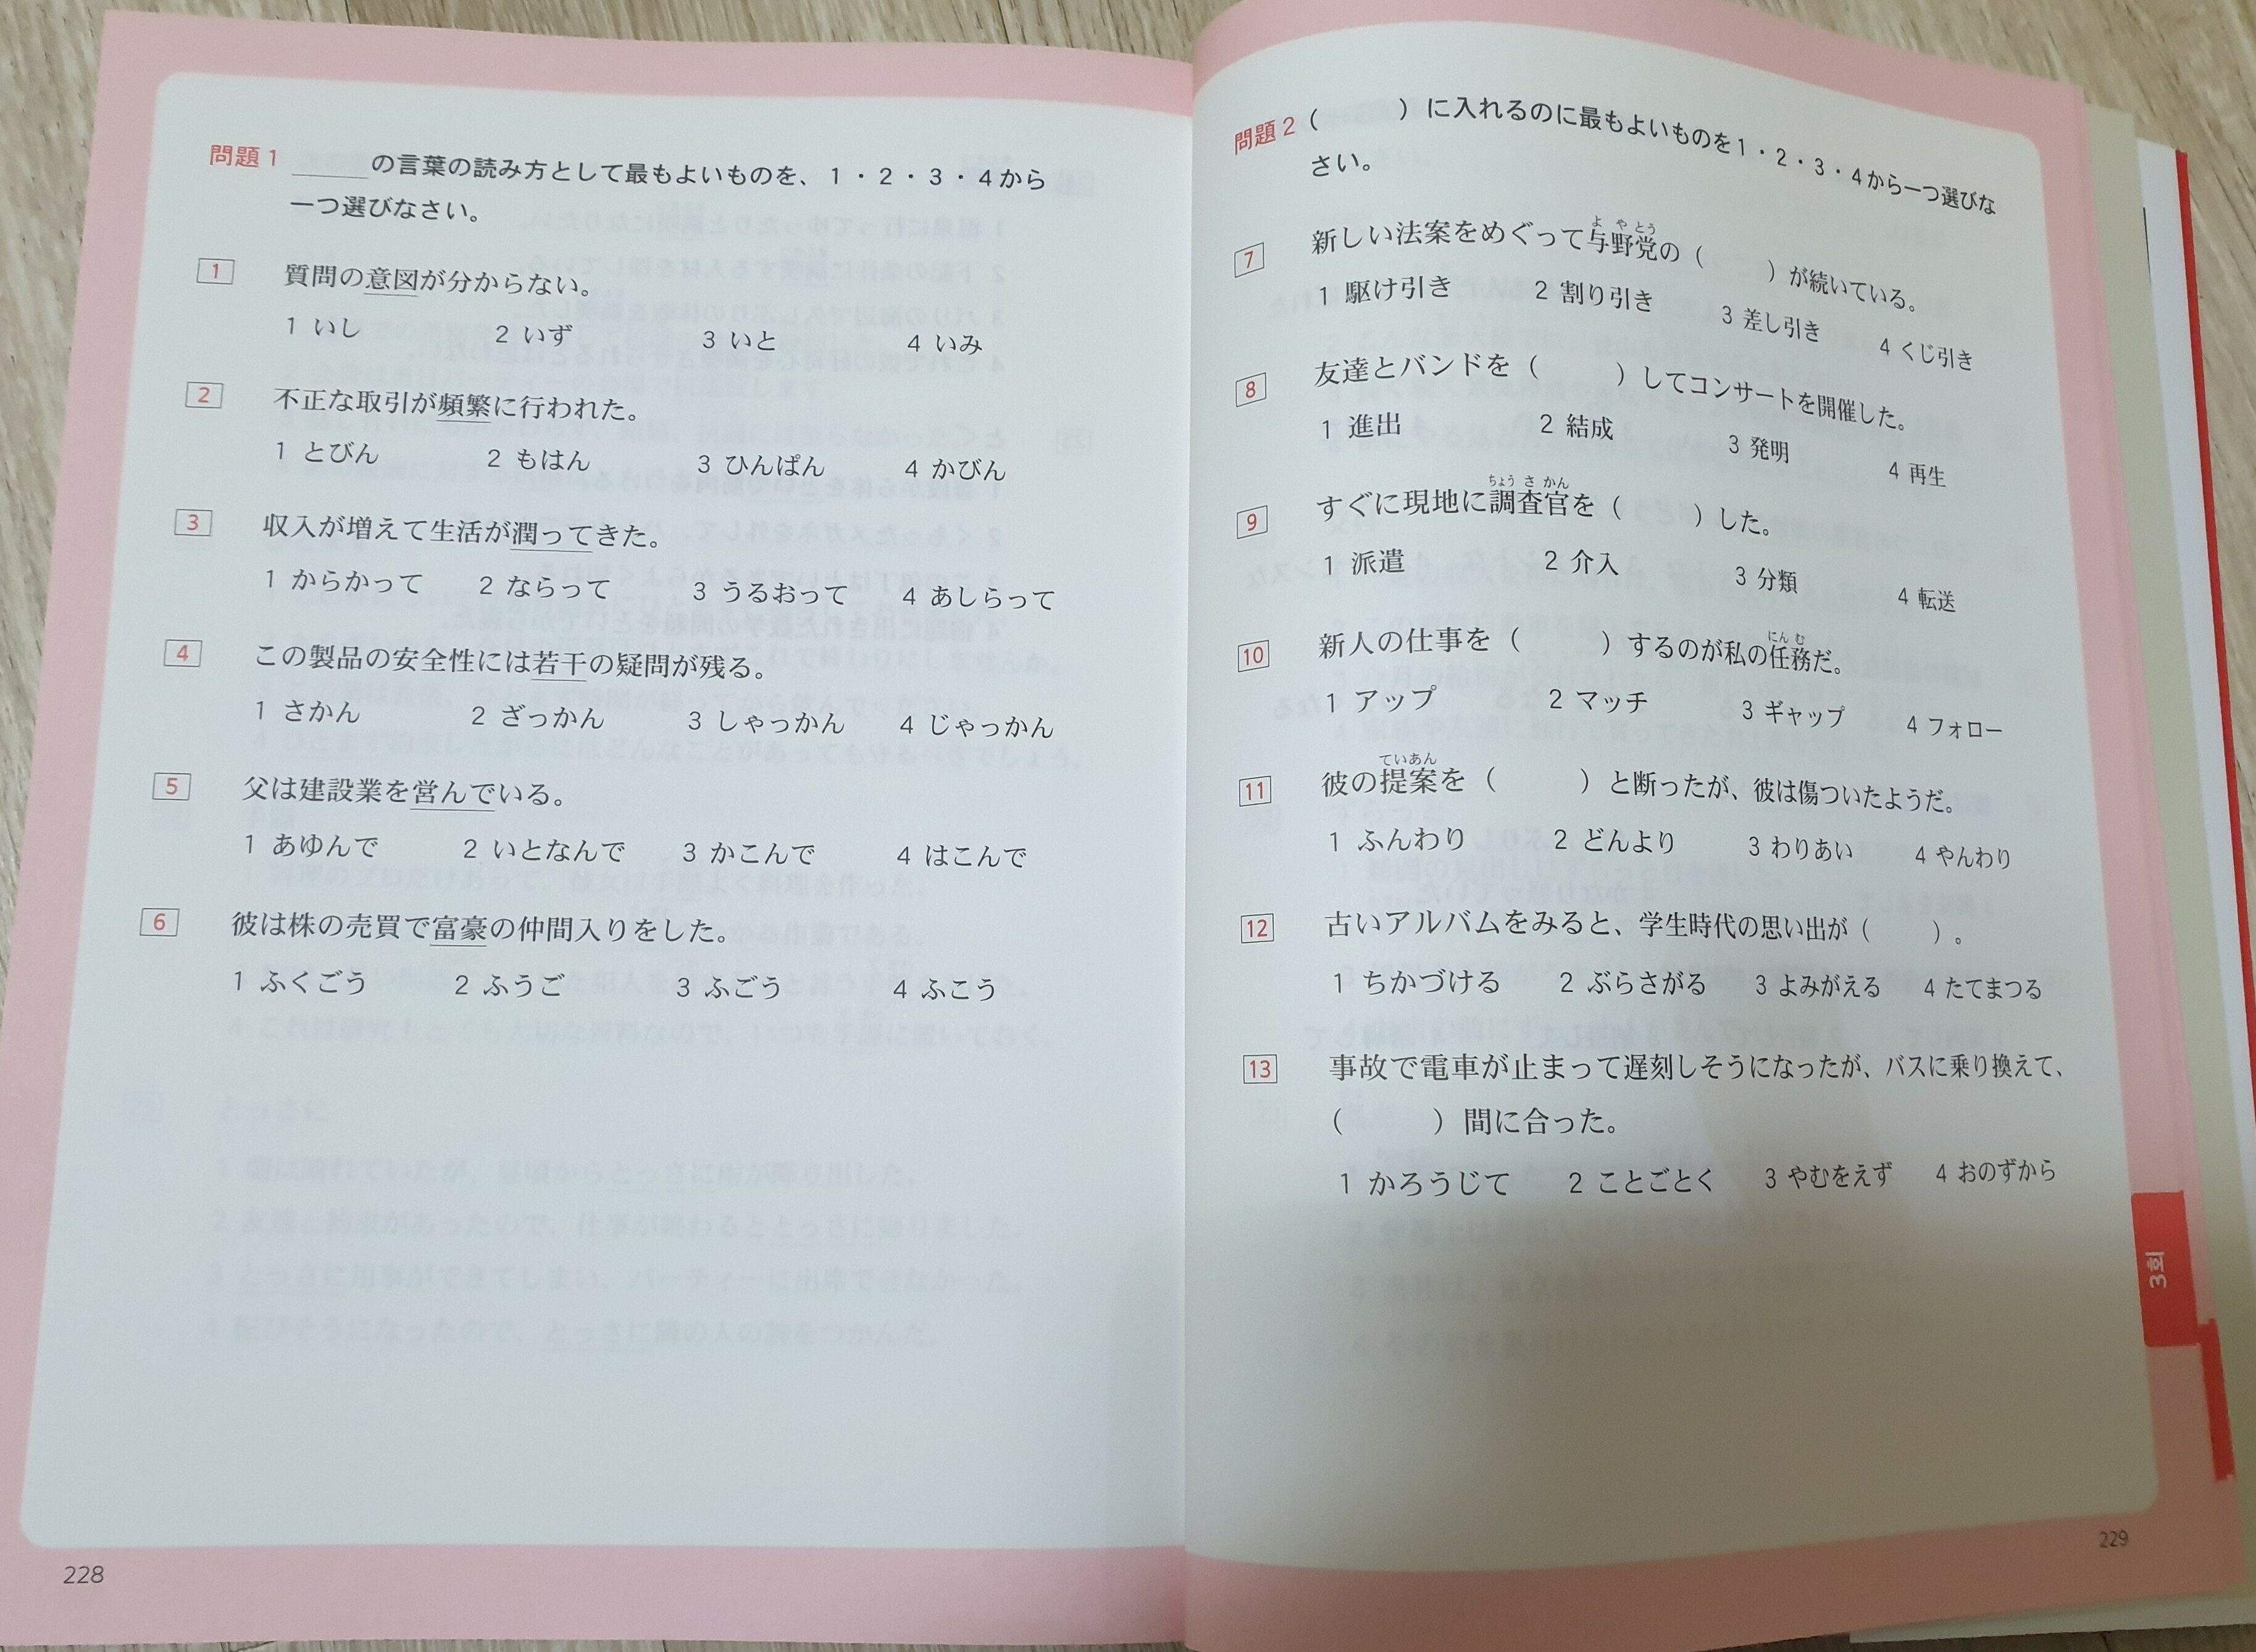 問題1 ＿＿＿の言葉の読み方として最もよいものを、1・2・3・4から
一つ選びなさい。
1 質問の意図が分からない。
1 いし 2 いず 3 いと 4 いみ
2 不正な取引が頻繁に行われた。
1 とびん 2 もはん 3 ひんぱん 4 かびん
3 収入が増えて生活が潤ってきた。
1 からかって 2 ならって 3 うるおって 4 あしらって
4 この製品の安全性には若干の疑問が残る。
1 さかん 2 ざっかん 3 しゃっかん 4 じゃっかん
5 父は建設業を営んでいる。
1 あゆんで 2 いとなんで 3 かこんで 4 はこんで
6 彼は株の売買で富豪の仲間入りをした。
1 ふくごう 2 ふうご 3 ふごう 4 ふこう
228
問題2 （　　）に入れるのに最もよいものを1・2・3・4から一つ選びな
さい。
よやとう
7 新しい法案をめぐって与野党の（　　）が続いている。
1 駆け引き 2 割り引き 3 差し引き 4 くじ引き
8 友達とバンドを（　　）してコンサートを開催した。
1 進出 2 結成 3 発明 4 再生
ちょうさかん
9 すぐに現地に調査官を（　　）した。
1 派遣 2 介入 3 分類 4 転送
にんむ
10 新人の仕事を（　　）するのが私の任務だ。
1 アップ 2 マッチ 3 ギャップ 4 フォロー
ていあん
11 彼の提案を（　　）と断ったが、彼は傷ついたようだ。
1 ふんわり 2 どんより 3 わりあい 4 やんわり
12 古いアルバムをみると、学生時代の思い出が（　　）。
1 ちかづける 2 ぶらさがる 3 よみがえる 4 たてまつる
13 事故で電車が止まって遅刻しそうになったが、バスに乗り換えて、
（　　）間に合った。
1 かろうじて 2 ことごとく 3 やむをえず 4 おのずから
3회
229